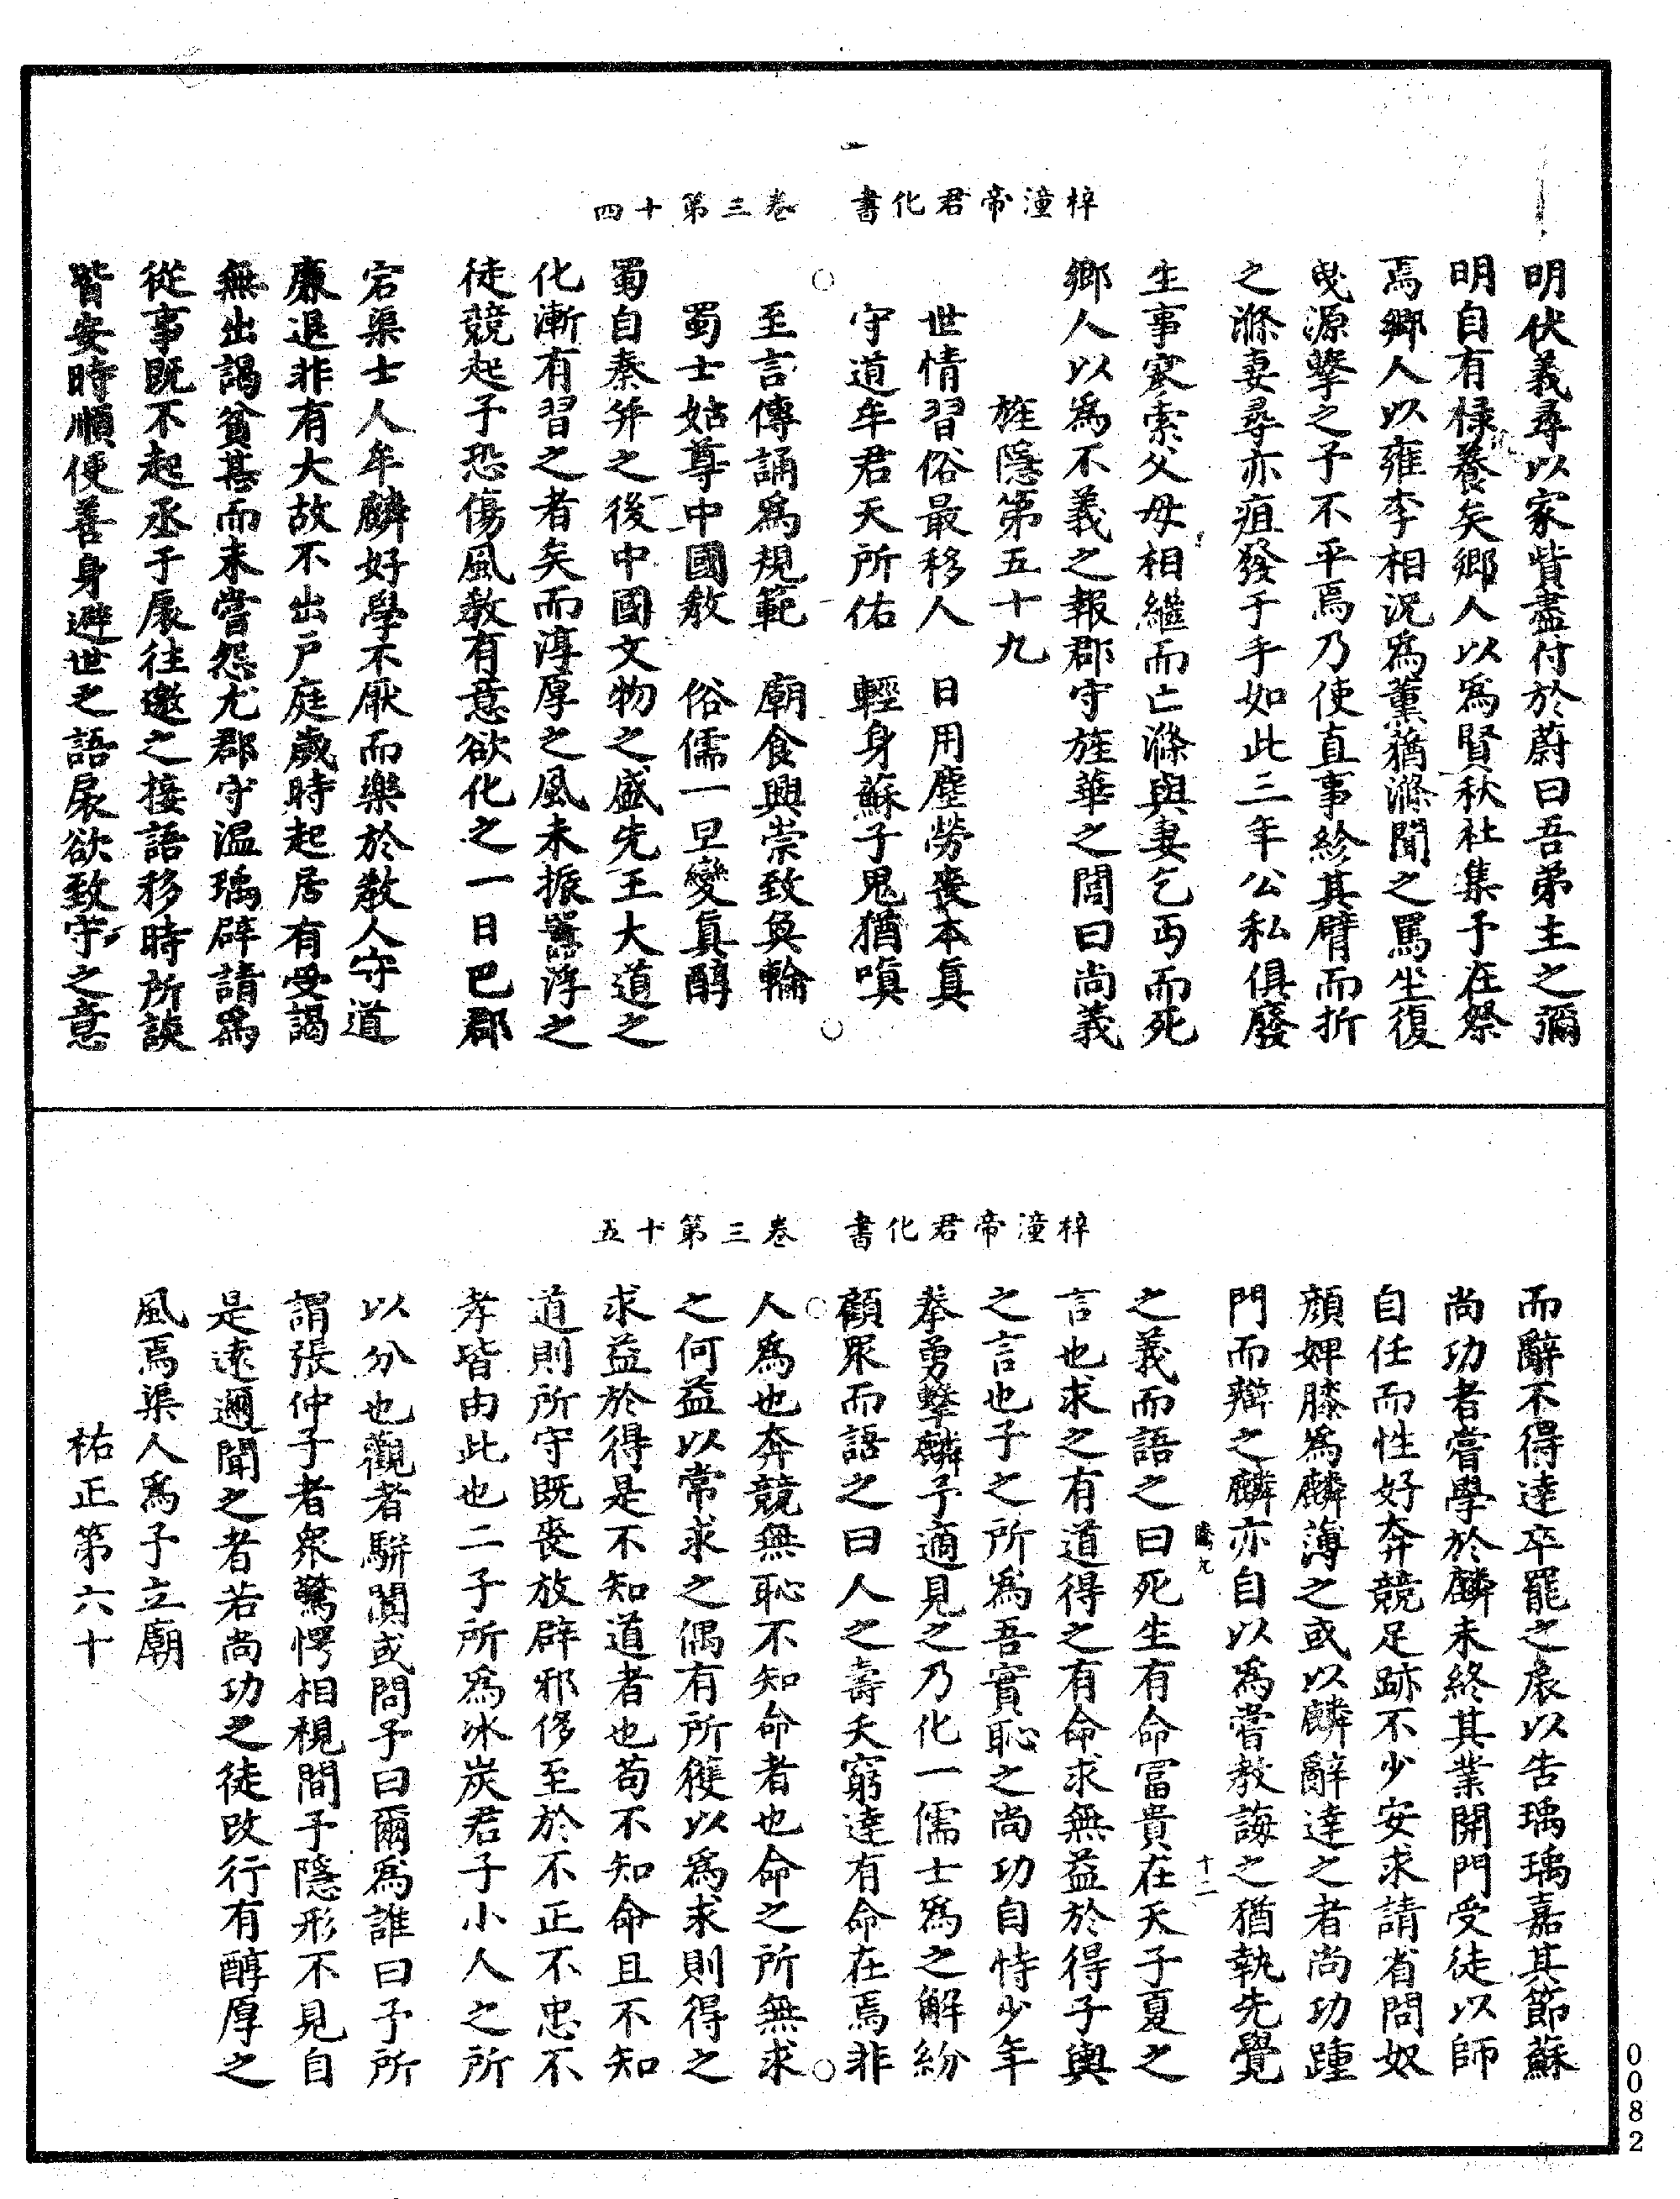 梓潼帝君化書　卷三第十四
明伏義尋以家貲盡付於蔚曰吾弟主之彌
明自有祿養矣鄉人以為賢秋社集予在祭
焉鄉人以雍李相況為薰蕕滌聞之罵坐復
曳源擊之予不平焉乃使直事紾其臂而折
之滌妻尋亦疽發于手如此三年公私俱廢
生事寥索父母相繼而亡滌與妻乞丐而死
鄉人以為不義之報郡守旌華之閭曰尚義
旌隱第五十九
世情習俗最移人　日用塵勞喪本真
守道牟君天所佑　輕身蘇子鬼猶嗔
至言傳誦為規範　廟食興崇致奐輪
蜀士姑尊中國教　俗儒一旦變真醇
蜀自秦并之後中國文物之盛先王大道之
化漸有習之者矣而淳厚之風未振囂浮之
徒競起予恐傷風教有意欲化之一日巴郡
宕渠士人牟麟好學不厭而樂於教人守道
廉退非有大故不出戶庭歲時起居有受謁
無出謁貧甚而未嘗怨尤郡守溫瑀辟請為
從事既不起丞于扆往邀之接語移時所談
皆安時順便善身避世之語扆欲致守之意
梓潼帝君化書　卷三第十五
而辭不得達卒罷之扆以告瑀瑀嘉其節蘇
尚功者嘗學於麟未終其業開門受徒以師
自任而性好奔競足跡不少安求請省問奴
顏婢膝為麟薄之或以麟辭達之者尚功踵
門而辯之麟亦自以為嘗教誨之猶執先覺
之義而語之曰死生有命富貴在天子夏之
言也求之有道得之有命求無益於得子輿
之言也子之所為吾實恥之尚功自恃少年
拳勇擊麟予適見之乃化一儒士為之解紛
顧眾而語之曰人之壽夭窮達有命在焉非
人為也奔競無恥不知命者也命之所無求
之何益以常求之偶有所獲以為求則得之
求益於得是不知道者也苟不知命且不知
道則所守既喪放辟邪侈至於不正不忠不
孝皆由此也二子所為冰炭君子小人之所
以分也觀者駢闐或問予曰爾為誰曰予所
謂張仲子者眾驚愕相視間予隱形不見自
是遠邇聞之者若尚功之徒改行有醇厚之
風焉渠人為予立廟
祐正第六十
十二
0082